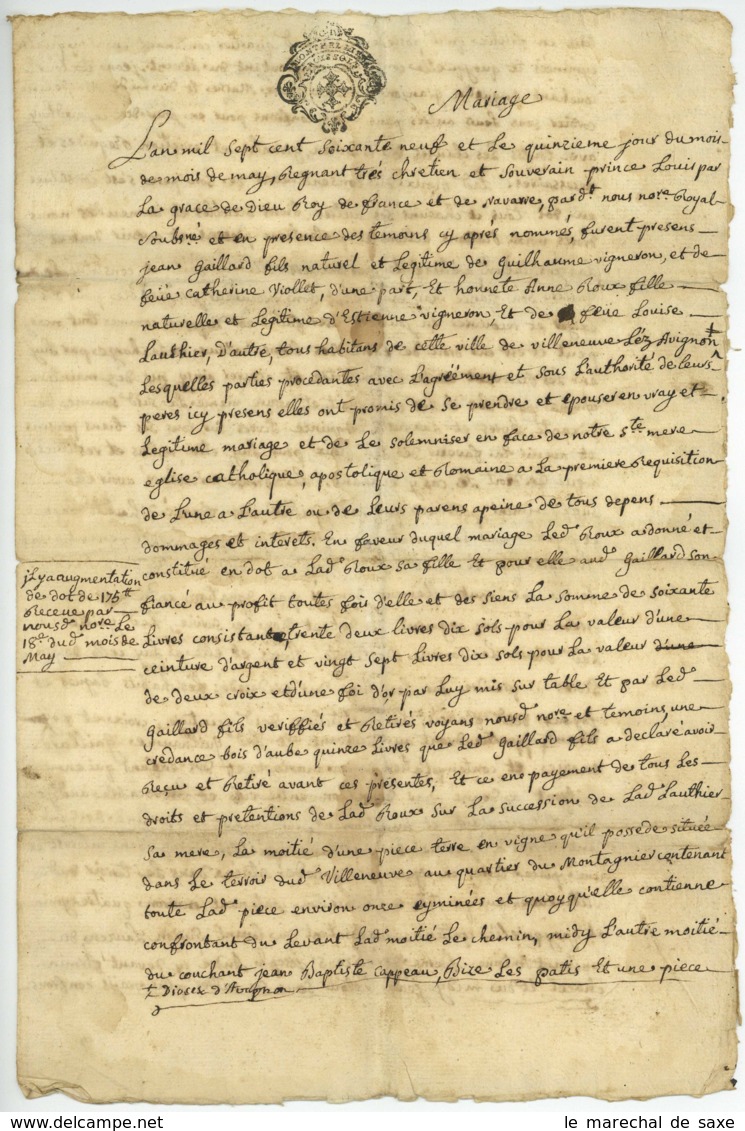 MONTPELLIER
Mariage
L'an mil sept cent soixante neuf et le quinzieme jour du mois
de mois de may, Regnant trés chretien et souverain prince Louis par
La grace de Dieu Roy de france et de navarre, pard.t nous no.re Royal
soubs.né et en presence des temoins cy aprés nommés, furent presens
jean Gaillard fils naturel et Legitime de Guilhaume vigneron, et de
feüe Catherine Viollet, d'une part, Et honnete Anne Roux fille
naturelle et Legitime d'Estienne vigneron, Et de feüe Louise
Lauthier, D'autre, tous habitans de cette ville de villeneuve Léz Avignon ‡
Lesquelles parties procedantes avec L'agréement et sous L'authorité de leurs
peres icy presens elles ont promis de se prendre et epouser en vray et
Legitime mariage et de le solemniser en face de notre s.te mere
eglise catholique, apostolique et Romaine a La premiere Requisition
de L'une a L'autre ou de Leurs parens apeine de tous depens
dommages et interets. En faveur duquel mariage Led. Roux a donné et
constitué en dot a Lad.e Roux sa fille Et pour elle aud. Gaillard son
fiancé au profit toutes fois d'elle et des siens La somme de soixante
Livres consistant, trente deux livres dix sols pour La valeur d'une
ceinture d'argent et vingt sept Livres dix sols pour La valeur d'une
de deux croix et d'une foi d'or, par Luy mis sur table Et par Led.
Gaillard fils veriffiés et Retirés voyans nousd. no.re et temoins, une
credance bois d'aube quinze Livres que Led. Gaillard fils a declaré avoir
Reçu et Retiré avant ces presentes, Et ce en payement de tous Les
droits et pretentions de Lad.e Roux sur La succession de Lad. Lauthier
sa mere, La moitié d'une piece terre en vigne qu'il possede située
dans Le terroir dud. Villeneuve au quartier du Montagnier contenant
toute Lad.e piece environ onze eyminées et quoyqu'elle contienne
confrontant du Levant Lad. moitié Le chemin, midy L'autre moitié
du couchant jean Baptiste Cappeau, Bize Les patis Et une piece
‡ Diosez d'Avignon
jL y a augmentation
de dot de 175 ₶
Receüe par
nousd. no.re Le
18.e dud. mois de
May
le marechal de saxe